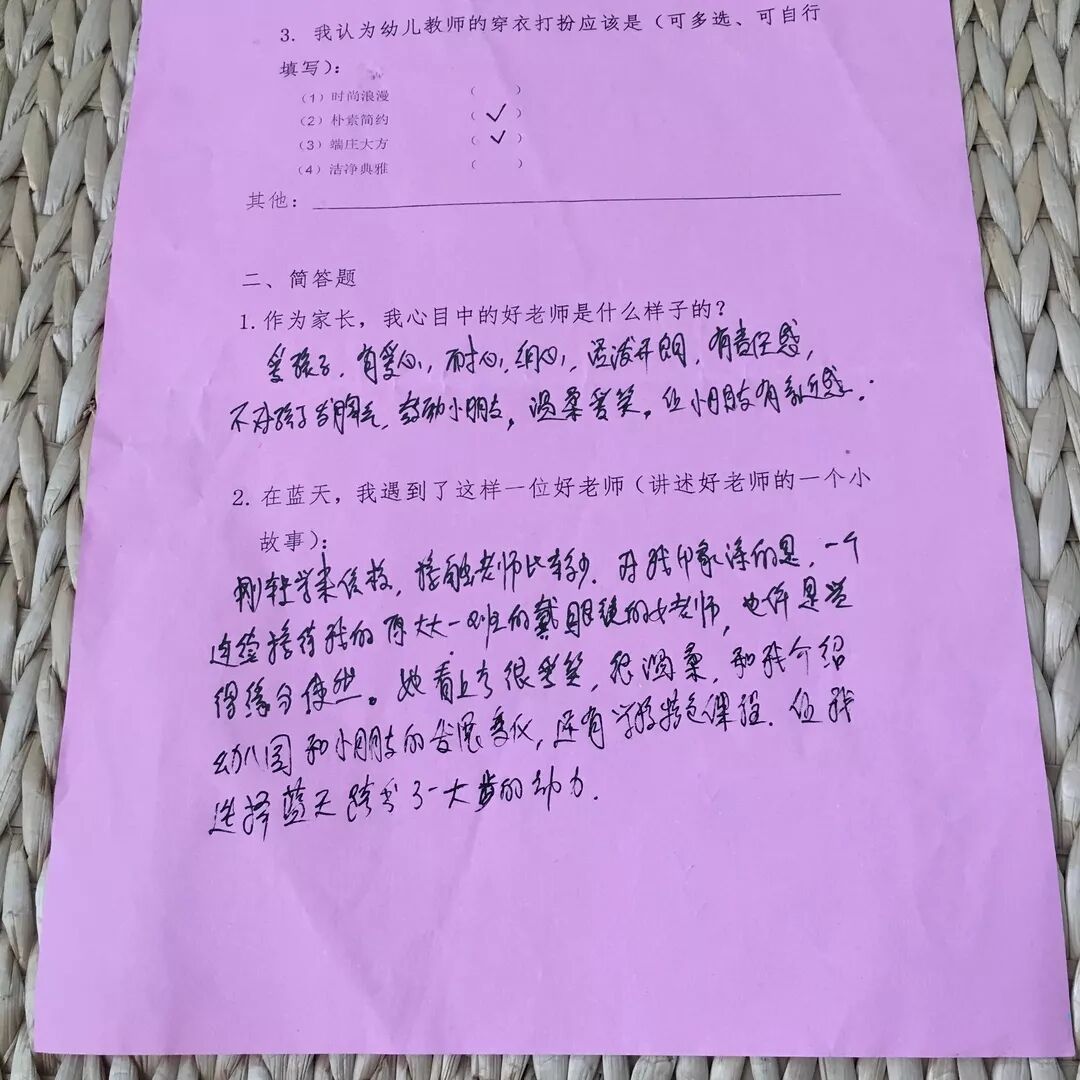 3. 我认为幼儿教师的穿衣打扮应该是（可多选、可自行
填写）：
（1）时尚浪漫 （ ）
（2）朴素简约 （ ✓ ）
（3）端庄大方 （ ✓ ）
（4）洁净典雅 （ ）
其他：
二、简答题
1. 作为家长，我心目中的好老师是什么样子的？
爱孩子，有爱心，耐心，细心，活泼开朗，有责任感，
不对孩子发脾气，鼓励小朋友，温柔爱笑，让小朋友有亲近感.
2. 在蓝天，我遇到了这样一位好老师（讲述好老师的一个小
故事）：
刚转学来信校，接触老师比较少. 对我印象深的是，一个
连续接待我的原大一班的戴眼镜的女老师，也许是觉
得缘分使然。她看上去很爱笑，很温柔，和我介绍
幼儿园和小朋友的发展变化，还有学校特色课程. 让我
选择蓝天跨出了一大步的动力.